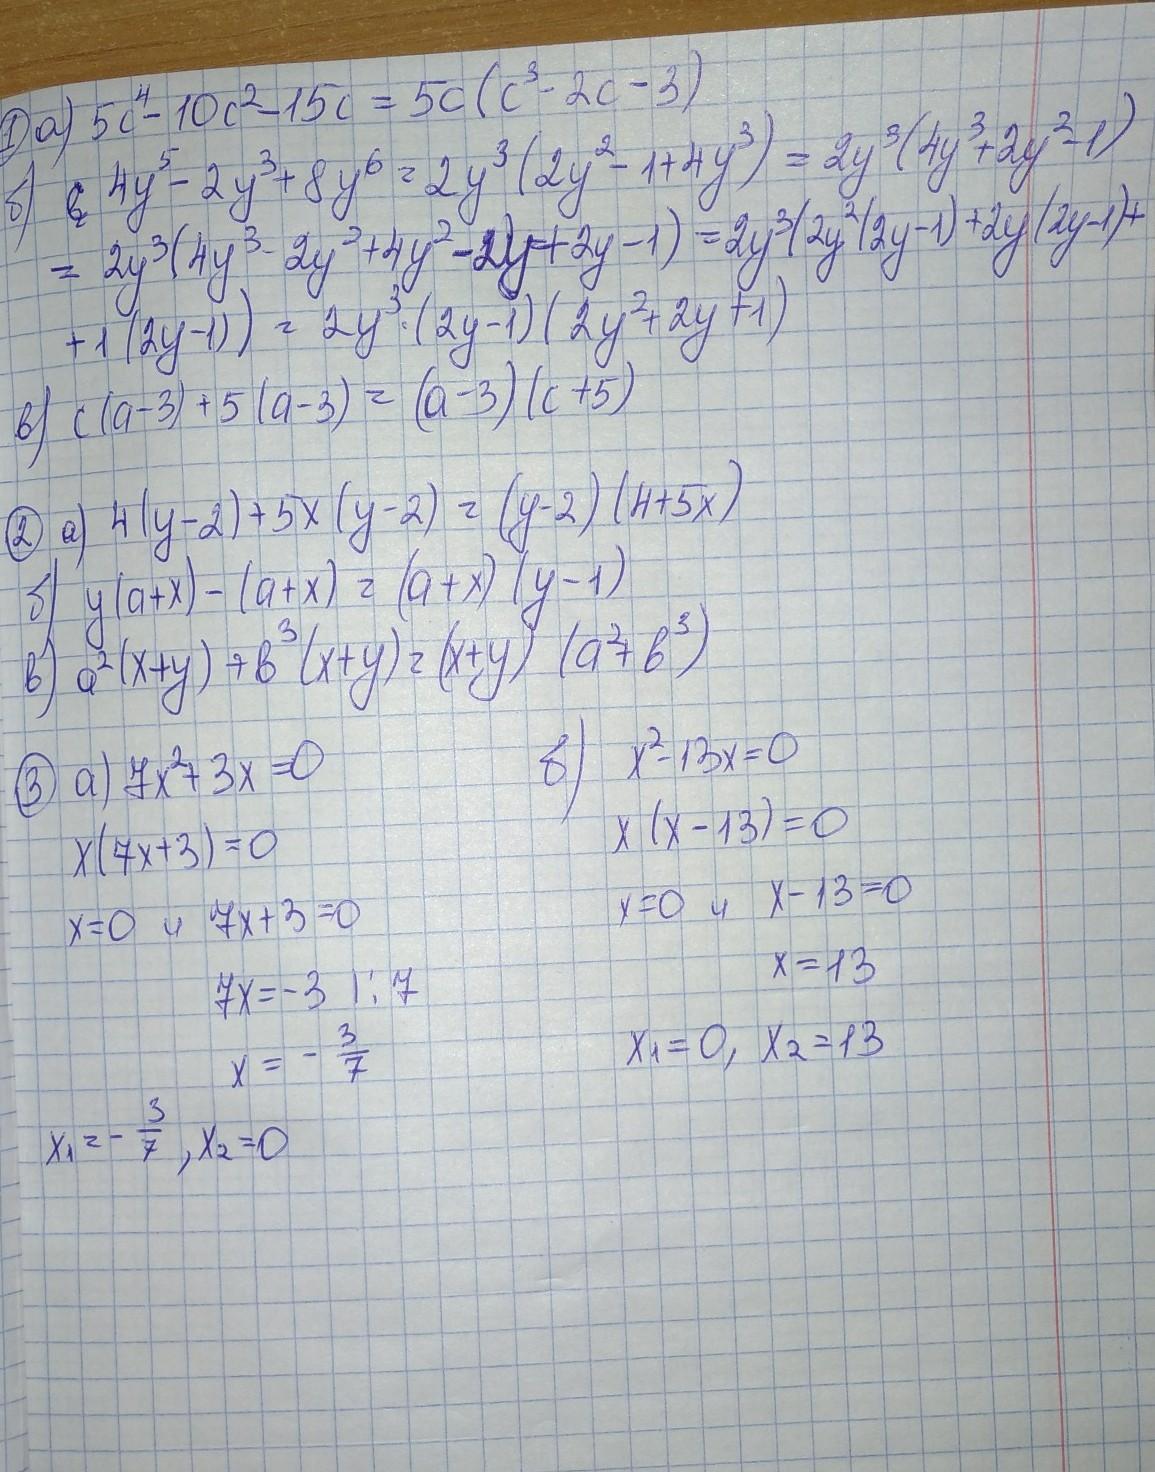 ① а) 5c⁴ - 10c² - 15c = 5c (c³ - 2c - 3)
б) 4y⁵ - 2y³ + 8y⁶ = 2y³ (2y² - 1 + 4y³) = 2y³ (4y³ + 2y² - 1)
= 2y³ (4y³ - 2y² + 4y² - 2y + 2y - 1) = 2y³ (2y² (2y - 1) + 2y (2y - 1) +
+ 1 (2y - 1)) = 2y³ · (2y - 1) (2y² + 2y + 1)
в) c (a - 3) + 5 (a - 3) = (a - 3) (c + 5)
② а) 4 (y - 2) + 5x (y - 2) = (y - 2) (4 + 5x)
б) y (a + x) - (a + x) = (a + x) (y - 1)
в) a² (x + y) + b³ (x + y) = (x + y) (a² + b³)
③ а) 7x² + 3x = 0
x (7x + 3) = 0
x = 0 и 7x + 3 = 0
7x = -3 | : 7
x = - 3/7
x₁ = - 3/7 , x₂ = 0
б) x² - 13x = 0
x (x - 13) = 0
x = 0 и x - 13 = 0
x = 13
x₁ = 0, x₂ = 13